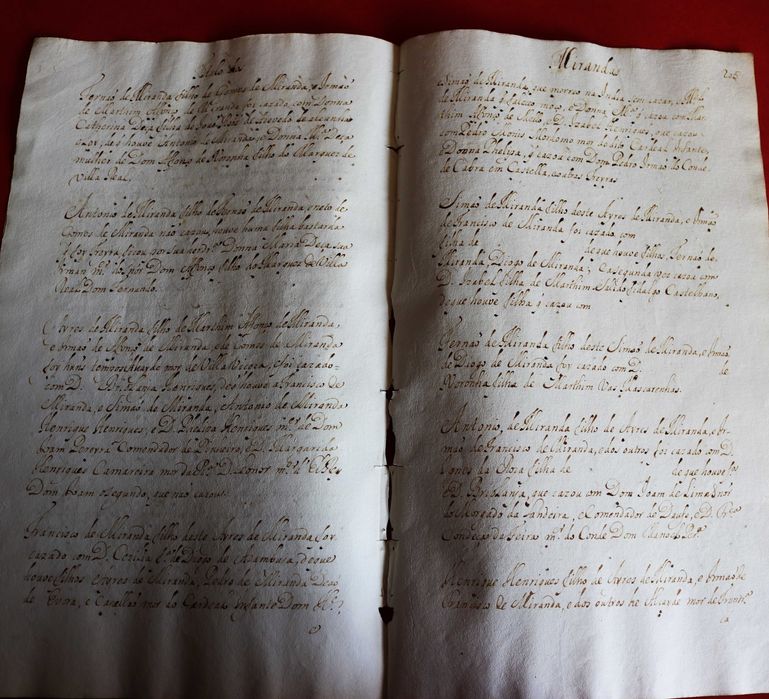 Titulo dos
Fernaõ de Miranda filho de Gomes de Miranda, e Irmaõ
de Marthim Affonso de Miranda foi cazado com Donna
Catherina Deça filha de Joaõ
q or, de q houve Antonio de Miranda, e Donna Mª Deça
mulher de Dom Affonso de Noronha filho do Marquez de
Villa Real.
Antonio de Miranda filho de Fernaõ de Miranda, e neto de
Gomes de Miranda naõ cazou, houve huma filha bastarda
q foy freyra ficou por sua herdrª Donna Maria Deça sua
Irman mᵉʳ do dito Dom Affonso filho do Marquez de Villa
Real Dom Fernando.
Ayres de Miranda filho de Marthim Affonso de Miranda,
e Irmaõ de Affonso de Miranda, e de Gomes de Miranda
foy hum tempo Alcayde mor de Villa Vicoza, e foi cazado
com D. Briolanja Henriques, de q houve a Francisco de
Miranda, e Simaõ de Miranda, e Antonio de Miranda
Henrique Henriques, e D. Phelipa Henriques mᵉʳ de Dom
Joam Pereyra Comendador de Pinheiro, e D. Margarida
Henriques Camareira mor da Rª D. Leonor mᵉʳ del Rey
Dom Joam o segundo, que naõ cazou.
Francisco de Miranda filho deste Ayres de Miranda foy
cazado com D. Cecilia fª de Diogo de Azambuja, de que
houve filhos Ayres de Miranda, Pedro de Miranda Deaõ
de Evora, e Capellaõ mor do Cardeal Infante Dom Aº,
Mirandas 205
Simaõ de Miranda, que morreo na India sem cazar,
de Miranda faleceo moço, e Donna Mª q cazou com Mar
thim Affonso de Mello, e D. Izabel Henriques, que cazou
com Mordomo mor do dito Cardeal Infante,
e Donna Phelipa, q cazou com Dom Pedro Irmaõ do Conde
de Cabra em Castella,
Simaõ de Miranda filho deste Ayres de Miranda, e Irmaõ
de Francisco de Miranda foi cazado com
filha de de que houve filhos Fernaõ de
Miranda, Diogo de Miranda; e a segunda vez cazou com
D. Izabel filha de Marthim Fidalgo Castelhano,
de que houve filha q cazou com
Fernaõ de Miranda filho deste Simaõ de Miranda, e Irmaõ
de Diogo de Miranda foy cazado com D. de
Noronha filha de Marthim Vas Mascarenhas.
Antonio de Miranda filho de Ayres de Miranda, e Ir-
maõ de Francisco de Miranda, e dos outros foi cazado com D.
filha de de que houve
e D. Briolanja, que cazou com Dom Joam de Lima Snor
do Morgado da e Comendador de e D.
Condeça da Feira mᵉʳ do Conde Dom
Henrique Henriques filho de Ayres de Miranda, e Irmaõ de
Francisco de Miranda, e dos outros he Alcayde mor de